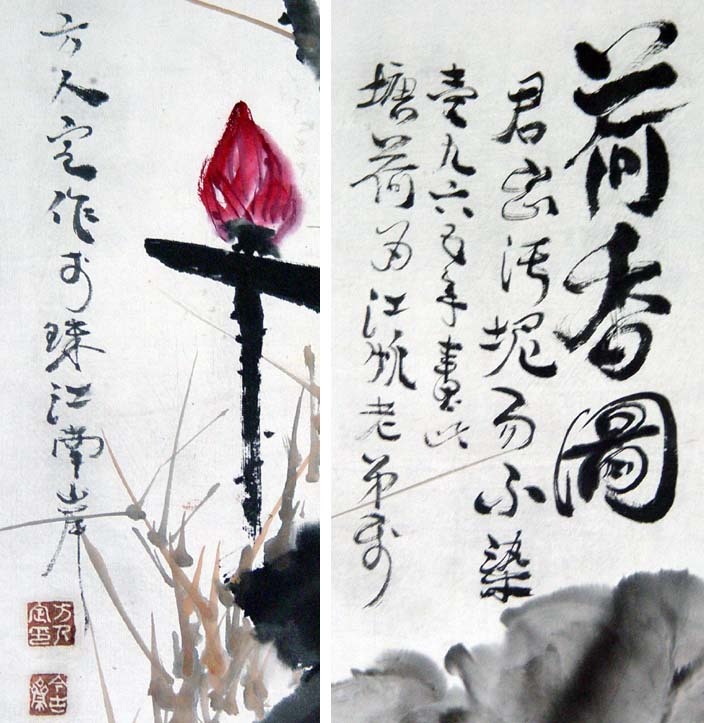 荷香圖
君出污泥而不染
壹九六五年畫此
塘荷為江帆老弟
方人定作於珠江南岸
方人定印
今古齋